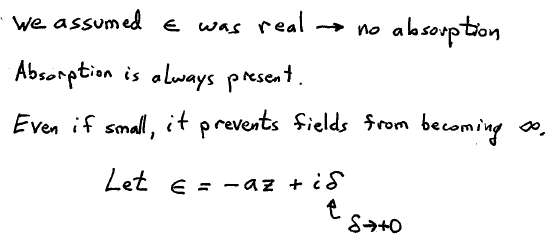 We assumed ϵ was real → no absorption
Absorption is always present.
Even if small, it prevents fields from becoming ∞.
Let ϵ = -az + iδ
↑ δ→+0